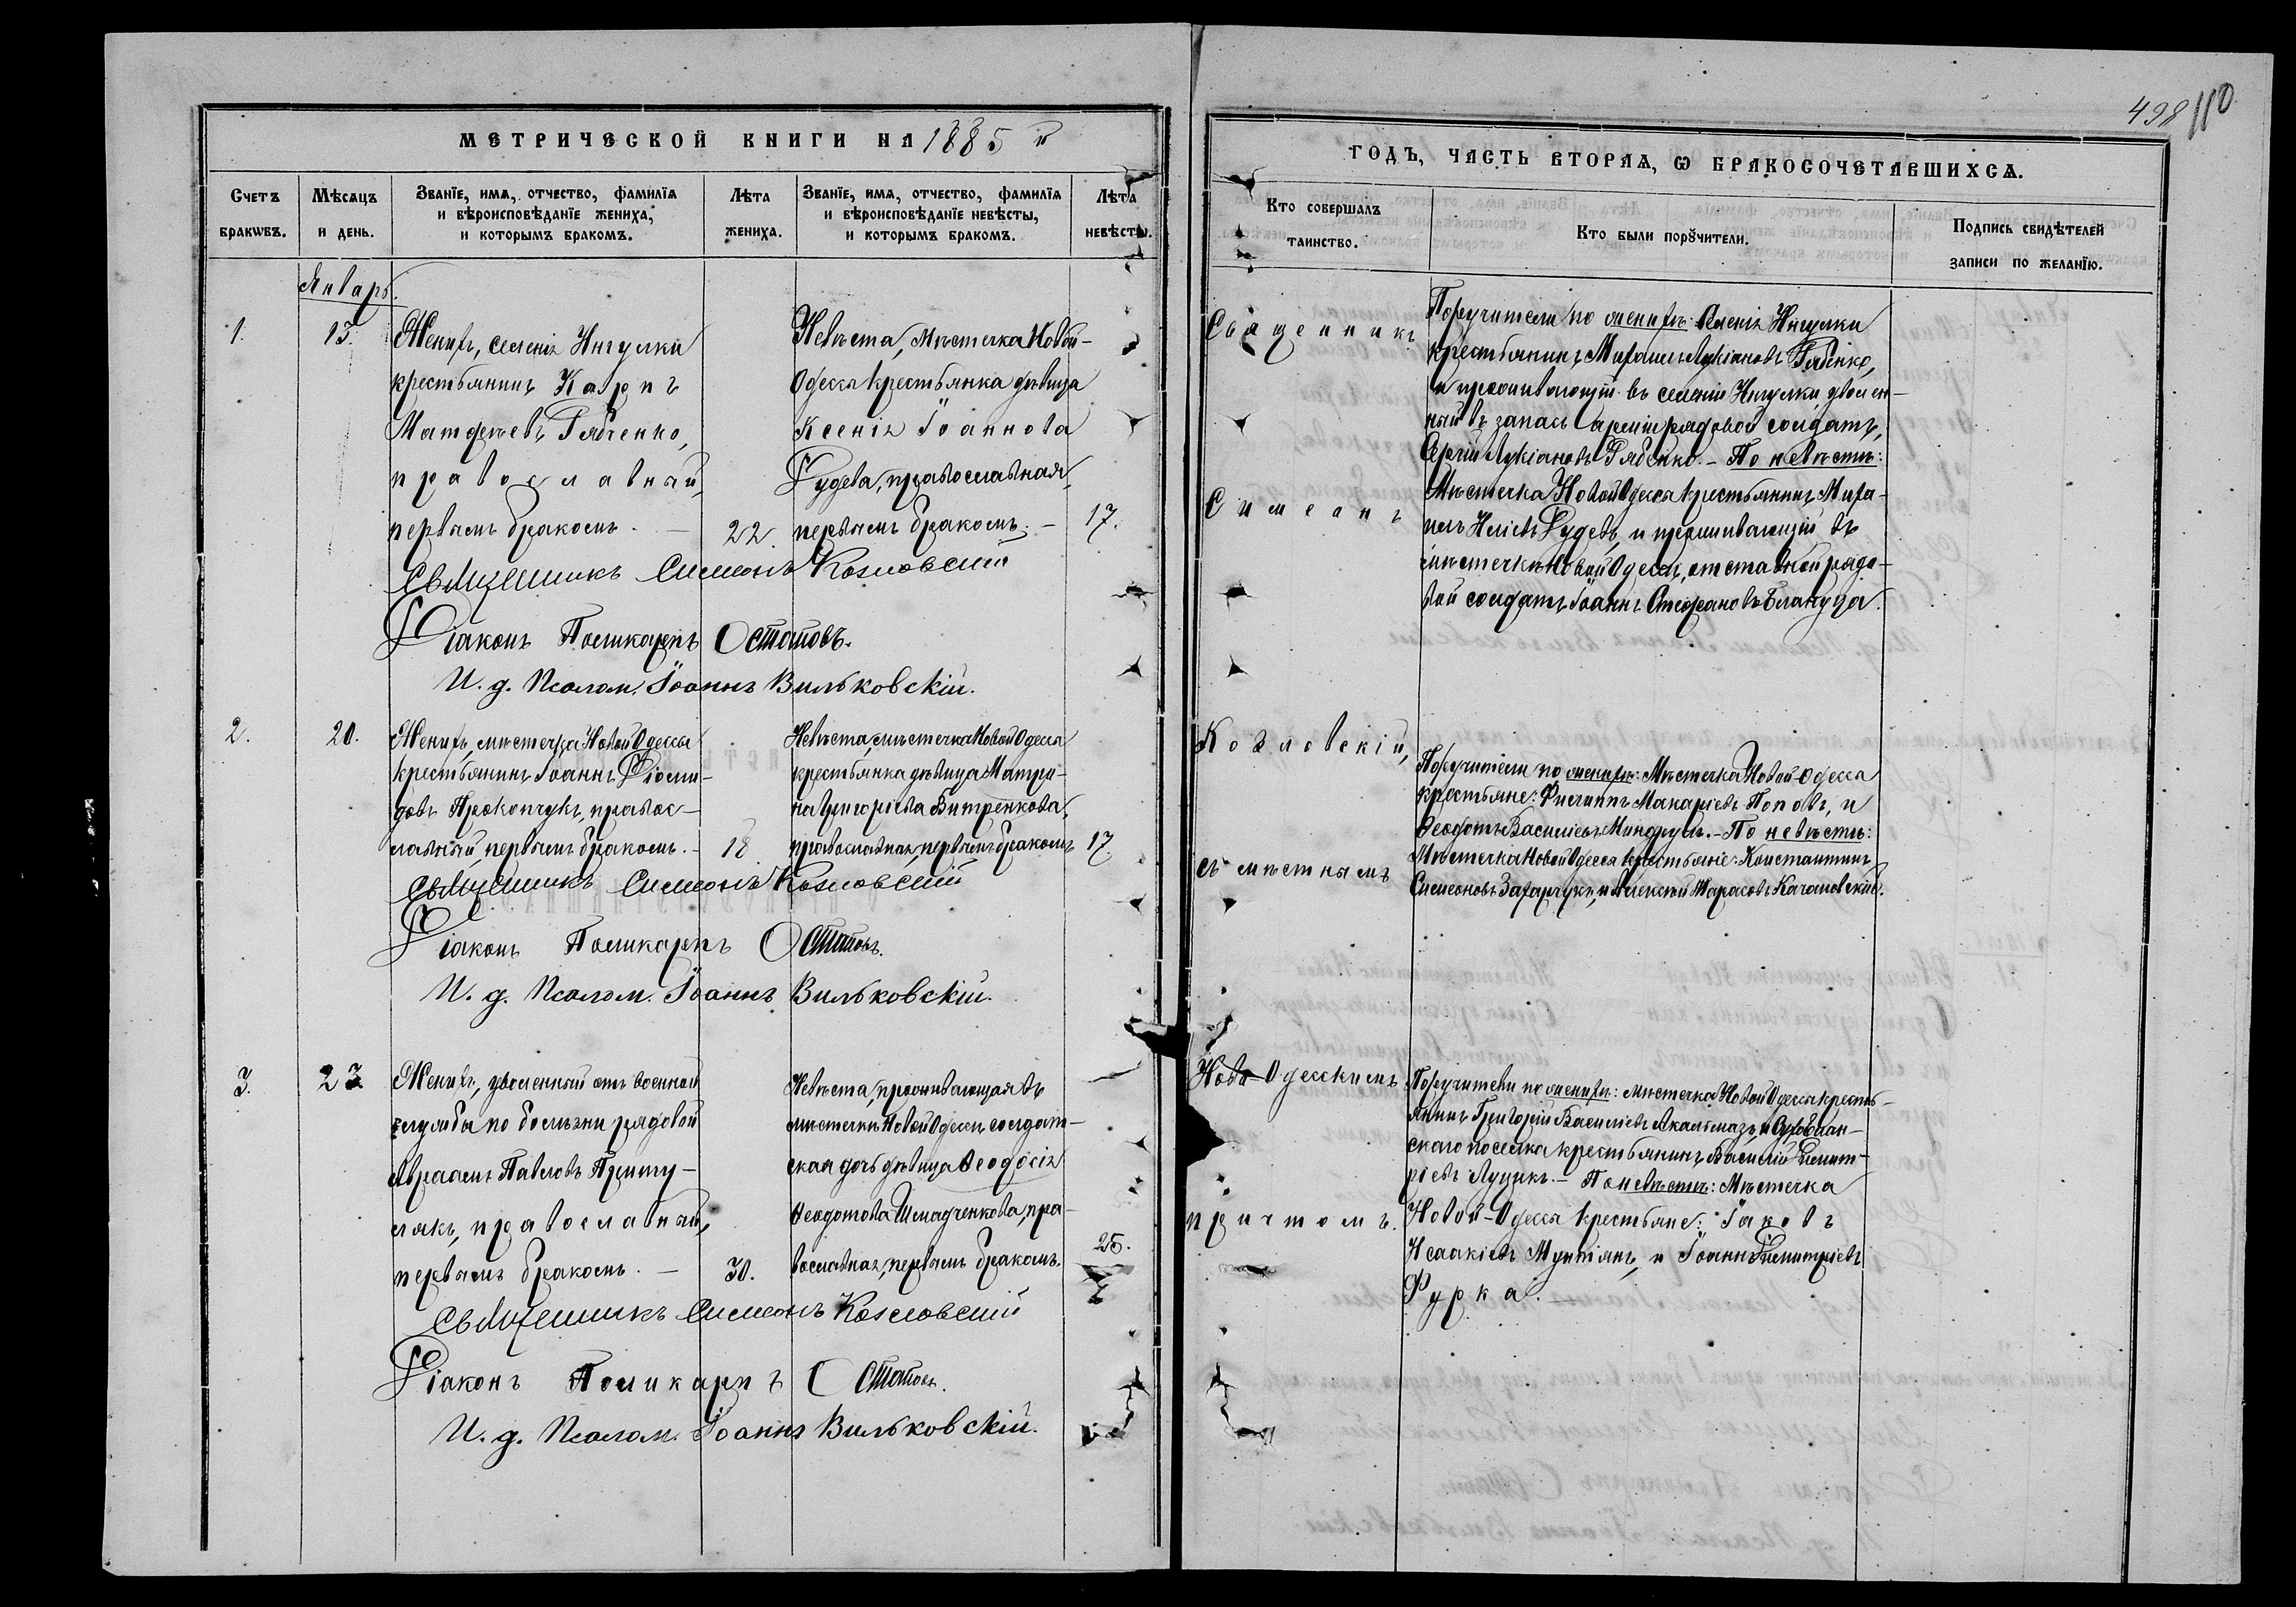 498 110
МЕТРИЧЕСКОЙ КНИГИ НА 1885 й
ГОДЪ, ЧАСТЬ ВТОРАЯ, Ѡ БРАКОСОЧЕТАВШИХСЯ.
Счетъ браковъ.
Мѣсяцъ и день.
Званїе, имя, отчество, фамилїя
и вѣроисповѣданїе жениха,
и которымъ бракомъ.
Лѣта
жениха.
Званїе, имя, отчество, фамилїя
и вѣроисповѣданїе невѣсты,
и которымъ бракомъ.
Лѣта
невѣсты.
Кто совершалъ
таинство.
Кто были порꙋчители.
Подпись свидѣтелей
записи по желанїю.
Январь.
1.
13.
Женихъ, селенія Ингулки
крестьянинъ Карпъ
Матфѣевъ Рябченко,
православный,
первымъ бракомъ. —
22.
Невѣста, Мѣстечка Новой-
Одессы крестьянка дѣвица
Ксенія Іоаннова
Гудева, православная,
первымъ бракомъ. —
17.
Священникъ Симеонъ Козловскій
Діаконъ Поликарпъ Остаповъ.
И. д. Псалом. Іоаннъ Вильковскій.
Священникъ
Симеонъ
Поручители по женихѣ: Селенія Ингулки
крестьянинъ, Михаилъ Лукіановъ Рябенко,
и проживающій въ селеніи Ингулки уволен-
ный въ запасъ арміи рядовой солдатъ,
Сергій Лукіановъ Рябенко. — По невѣстѣ:
Мѣстечка Новой Одессы крестьянинъ, Миха-
илъ Иліевъ Гудевъ, и проживающій въ
мѣстечкѣ Новой Одессѣ, отставной рядо-
вой солдатъ Іоаннъ Стефановъ Блануца.
2.
20.
Женихъ, мѣстечка Новой Одессы
крестьянинъ Іоаннъ Діоми-
довъ Прокопчукъ, правос-
лавный первымъ бракомъ. —
18
Невѣста, мѣстечка Новой Одессы
крестьянка дѣвица Матро-
на Григоріева Витренкова,
православная, первымъ бракомъ
17
Священникъ Симеонъ Козловскій
Діаконъ Поликарпъ Остаповъ.
И. д. Псалом. Іоаннъ Вильковскій.
Козловскій,
съ мѣстнымъ
Поручители по женихѣ: Мѣстечка Новой-Одессы
крестьяне: Филиппъ Макаріевъ Поповъ, и
Ѳеодотъ Василіевъ Миндрулъ. — По невѣстѣ:
Мѣстечка Новой Одессы крестьяне: Константинъ
Симеоновъ Захарчукъ, и Алексѣй Тарасовъ Качановскій.
3.
23.
Женихъ, уволенный отъ военной
службы по болѣзни рядовой
Авраамъ Павловъ Приту-
лякъ, православный,
первымъ бракомъ. —
30.
Невѣста, проживающая въ
мѣстечкѣ Новой Одессѣ солдат-
ская дочь дѣвица Ѳеодосія
Ѳеодотова Шмадченкова, пра-
вославная, первымъ бракомъ.
25.
Священникъ Симеонъ Козловскій
Діаконъ Поликарпъ Остаповъ.
И. д. Псалом. Іоаннъ Вильковскій.
Ново-Одесскимъ
причтомъ.
Поручители по женихѣ: мѣстечка Новой Одессы кресть-
янинъ Григорій Василіевъ Акалмазъ, и
скаго поселка крестьянинъ Василій Димит-
ріевъ Луцикъ. — По невѣстѣ: Мѣстечка
Новой-Одессы крестьяне: Іаковъ
Исаакіевъ Мунтянъ, и Іоаннъ Димитріевъ
Фурка. —